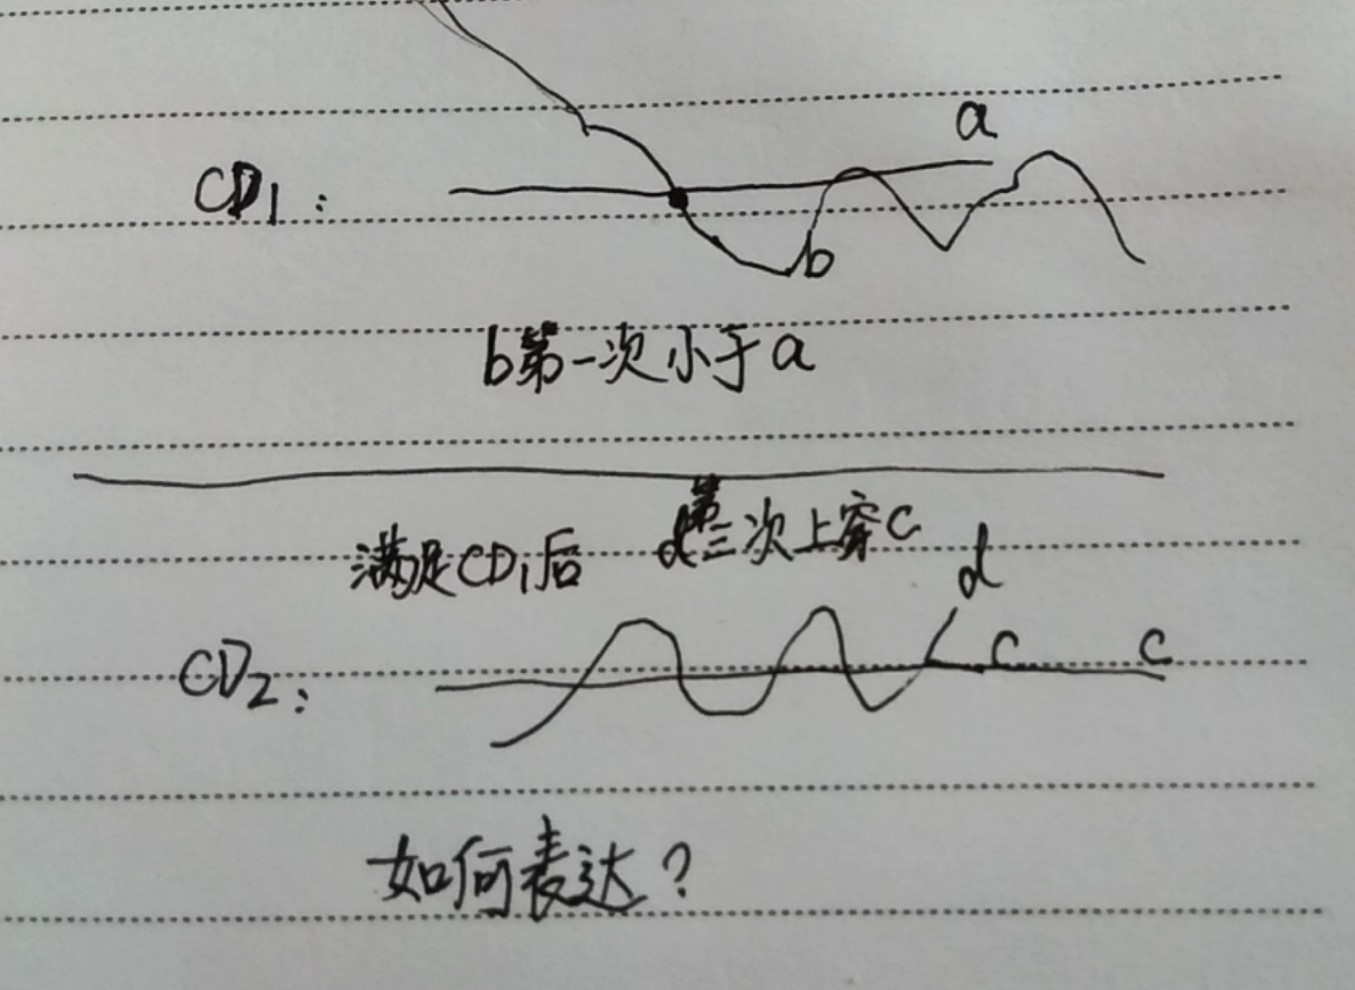 a
CD1:
b
b第一次小于a
满足CD1后 d第三次上穿c
d
CD2: c c
如何表达?